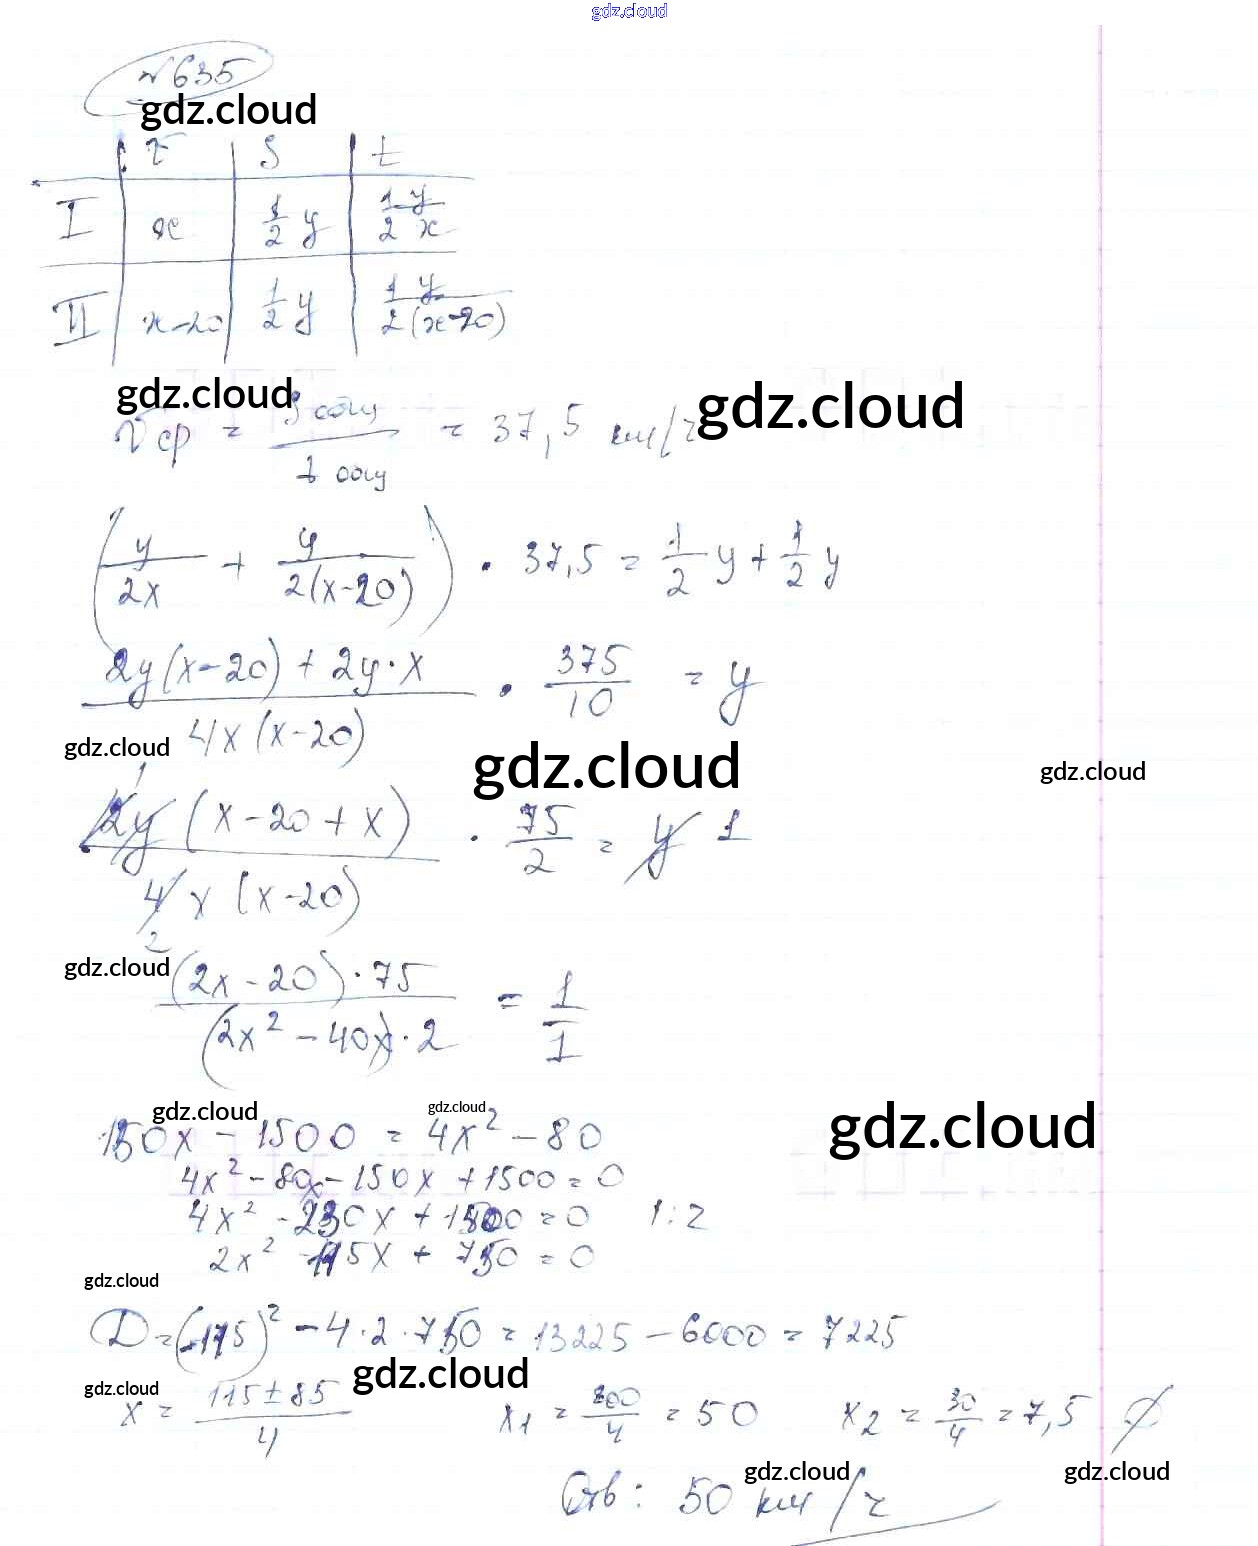 gdz.cloud
№635
gdz.cloud
v S t
I x 1/2 y 1y/2x
II x-20 1/2 y 1y/2(x-20)
gdz.cloud gdz.cloud
Vср = S общ/t общ = 37,5 км/ч
(y/2x + y/2(x-20)) · 37,5 = 1/2 y + 1/2 y
2y(x-20) + 2y·x/4x(x-20) · 375/10 = y
gdz.cloud gdz.cloud gdz.cloud
1
2y(x-20+x)/4x(x-20) · 75/2 = y 1
2
gdz.cloud
(2x-20)·75/(2x²-40x)·2 = 1/1
gdz.cloud gdz.cloud gdz.cloud
150x - 1500 = 4x² - 80
4x² - 80x - 150x + 1500 = 0
4x² - 230x + 1500 = 0 |:2
2x² - 115x + 750 = 0
gdz.cloud
D = (-115)² - 4·2·750 = 13225 - 6000 = 7225
gdz.cloud gdz.cloud
x = 115±85/4 x1 = 200/4 = 50 x2 = 30/4 = 7,5 ∅
gdz.cloud gdz.cloud
Отв: 50 км/ч